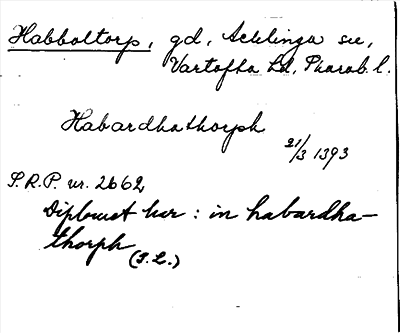 Habboltorp, gd, Acklinga sn,
Vartofta hd, Skarab. l.
Habardhathorph
21/3 1393
S.R.P. nr. 2662
Diplomet har: in habardha-
thorph (I.L.)